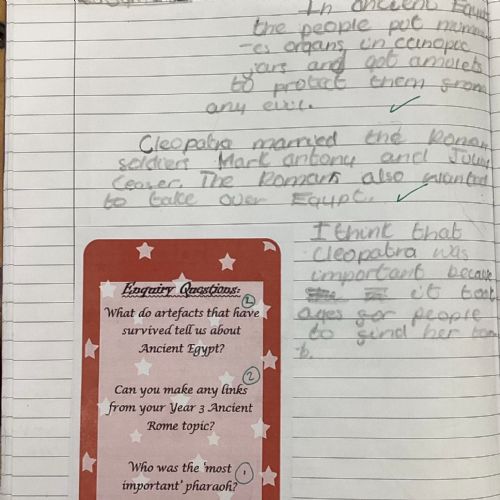 In ancient Egypt
the people put mumm
-es organs in canopic
jars and got amulets
to protect them from
any evil.
Cleopatra married the Roman
soldiers Mark antony and
The Romans also wanted
to take over Egypt.
I think that
Cleopatra was
important because
it took
ages for people
to find her tom
b.
Enquiry Questions:
2
What do artefacts that have
survived tell us about
Ancient Egypt?
2
Can you make any links
from your Year 3 Ancient
Rome topic?
Who was the 'most
1
important' pharaoh?